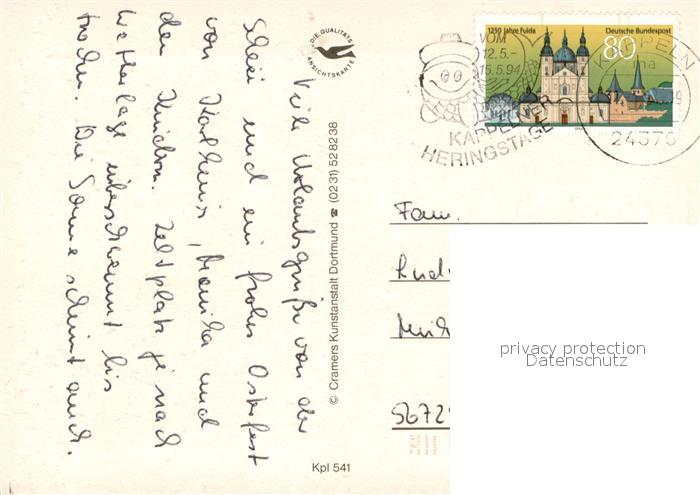 Viele Urlaubsgrüße von der
Schlei und ein frohes Osterfest
von Karlheinz, Monika und
den Kindern. Zeltplatz je nach
Wetterlage überschwemmt bis
trocken. Die Sonne scheint auch.
DIE QUALITÄTS
ANSICHTSKARTE
© Cramers Kunstanstalt Dortmund ☎ (0231) 528238
Kpl 541
1250 Jahre Fulda
Deutsche Bundespost
80
VOM
12.5.-
15.5.94
KAPPELNER
HERINGSTAGE
KAPPELN
24376
Fam.
privacy protection
Datenschutz